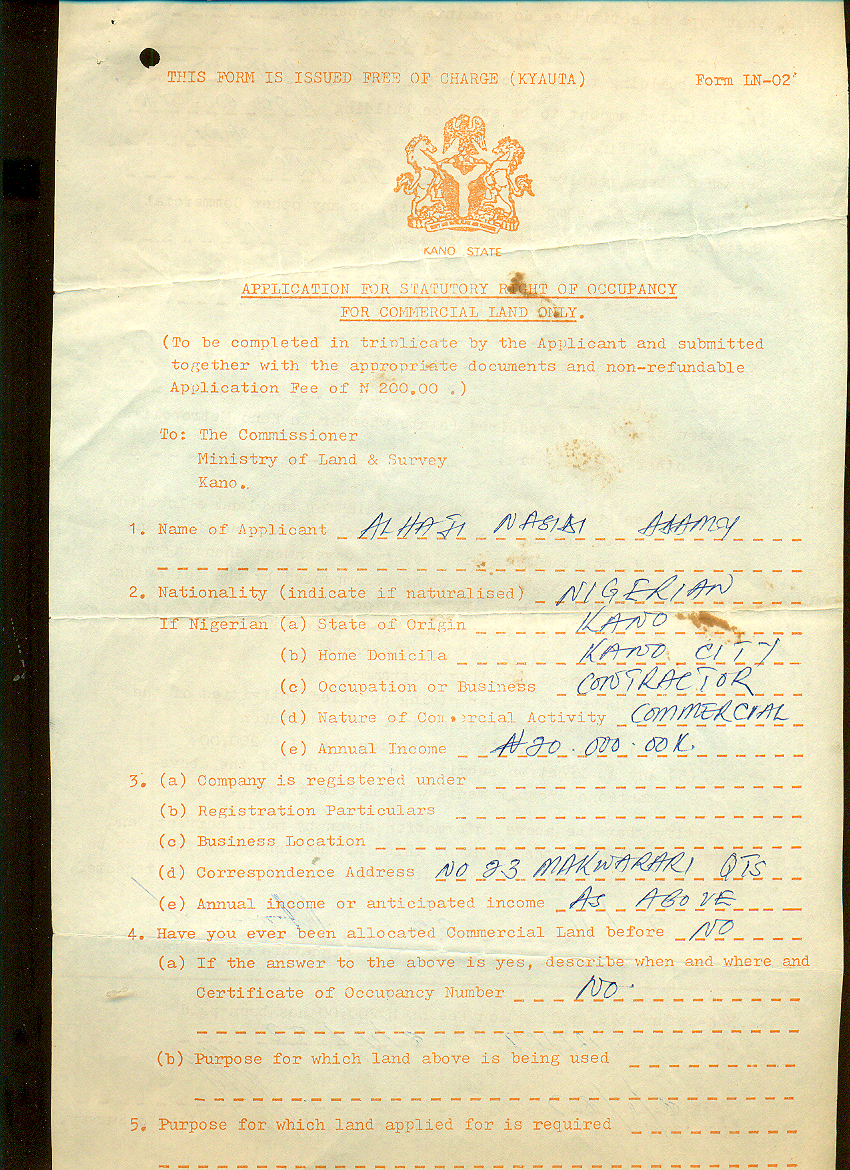 THIS FORM IS ISSUED FREE OF CHARGE (KYAUTA) Form LN-02
KANO STATE
APPLICATION FOR STATUTORY RIGHT OF OCCUPANCY
FOR COMMERCIAL LAND ONLY.
(To be completed in triplicate by the Applicant and submitted
together with the appropriate documents and non-refundable
Application Fee of ₦ 200.00 .)
To: The Commissioner
Ministry of Land & Survey
Kano.
1. Name of Applicant ALHAJI
2. Nationality (indicate if naturalised) NIGERIAN
If Nigerian (a) State of Origin KANO
(b) Home Domicila KANO CITY
(c) Occupation or Business CONTRACTOR
(d) Nature of Commercial Activity COMMERCIAL
(e) Annual Income ₦20.000.00K
3. (a) Company is registered under
(b) Registration Particulars
(c) Business Location
(d) Correspondence Address NO 23 MAKWARARI QTS
(e) Annual income or anticipated income AS ABOVE
4. Have you ever been allocated Commercial Land before NO
(a) If the answer to the above is yes, describe when and where and
Certificate of Occupancy Number NO
(b) Purpose for which land above is being used
5. Purpose for which land applied for is required